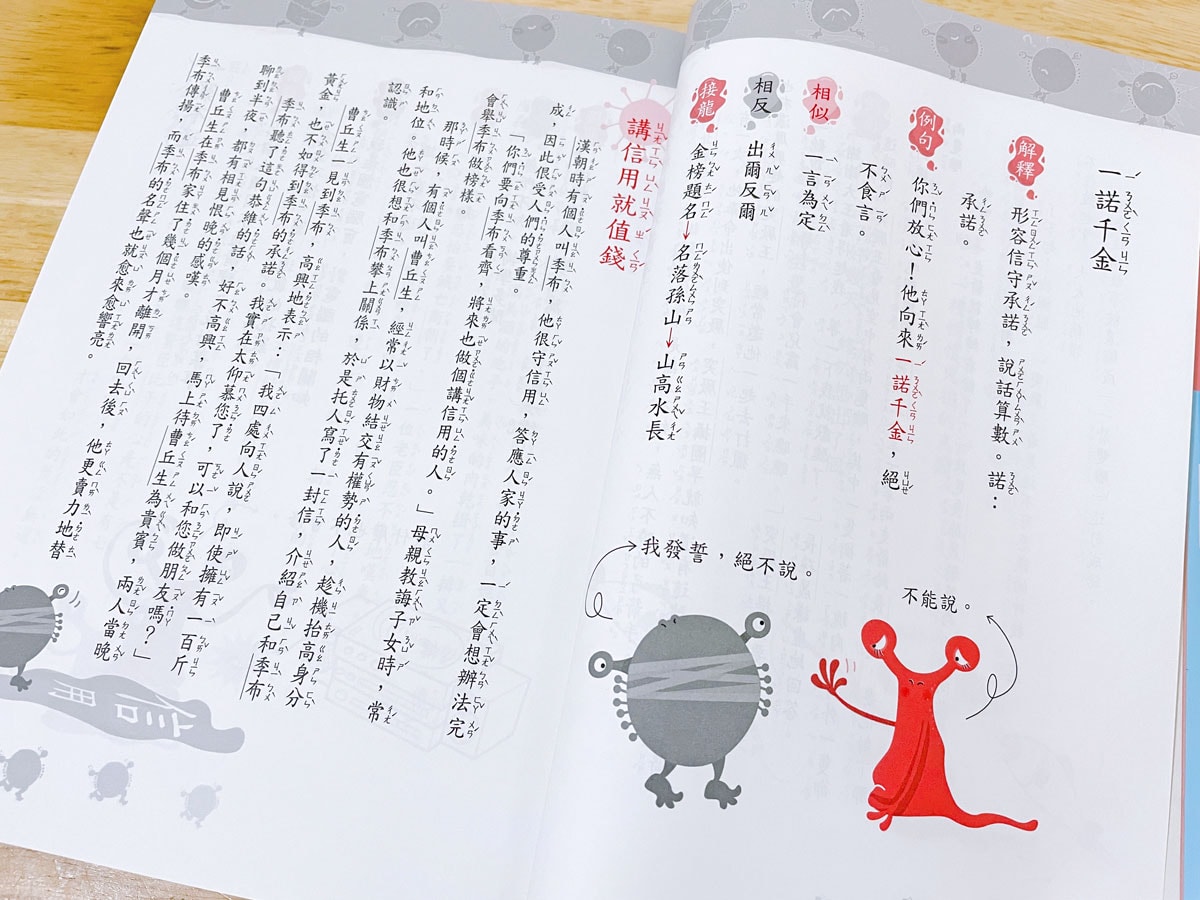 一諾千金
解釋
形容信守承諾，說話算數。諾：
承諾。
例句
你們放心！他向來一諾千金，絕
不食言。
相似
一言為定
相反
出爾反爾
接龍
金榜題名→名落孫山→山高水長
我發誓，絕不說。
不能說。
講信用就值錢
漢朝時有個人叫季布，他很守信用，答應人家的事，一定會想辦法完
成，因此很受人們的尊重。
「你們要向季布看齊，將來也做個講信用的人。」母親教誨子女時，常
會舉季布做榜樣。
那時候，有個人叫曹丘生，經常以財物結交有權勢的人，趁機抬高身分
和地位。他也很想和季布攀上關係，於是托人寫了一封信，介紹自己和季布
認識。
曹丘生一見到季布，高興地表示：「我四處向人說，即使擁有一百斤
黃金，也不如得到季布的承諾。我實在太仰慕您了，可以和您做朋友嗎？」
季布聽了這句恭維的話，好不高興，馬上待曹丘生為貴賓，兩人當晚
聊到半夜，都有相見恨晚的感嘆。
曹丘生在季布家住了幾個月才離開，回去後，他更賣力地替
季布傳揚，而季布的名聲也就愈來愈響亮。